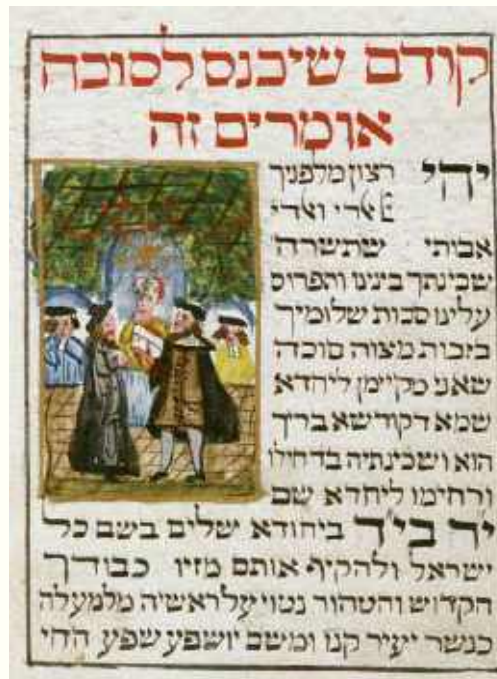 קודם שיכנס לסוכה
אומרים זה
יהי רצון מלפניך
ואדי
אבותי שתשרה
שכינתך בינינו ותפרוס
עלינו סכות שלומיך
בזכות מצוה סוכה
שאני מקיימן ליחדא
שמא דקודשא בריך
הוא ושכינתיה בדחילו
ורחימו ליחדא שם
ביחודא שלים בשם כל
ישראל ולהקיף אותם מזיו כבודך
הקדוש והטהור נטוי על ראשיה מלמעלה
כנשר יעיר קנו ומשם יושפע שפע החי